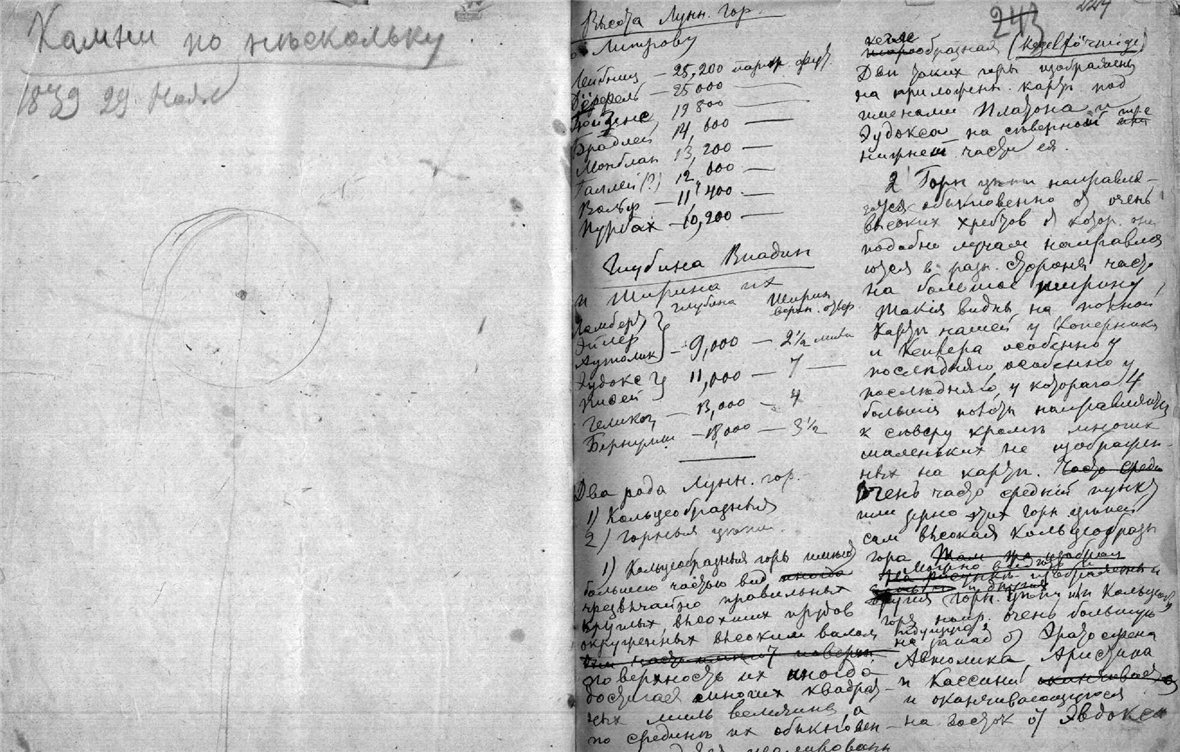 Камни по нѣскольку
1839 29. Ноя
Высота Лунн. гор.
по Литрову
Лейбниц — 25,200 париж. фут.
Дёрфель — 25000 —
19800 —
Брадлей 14,600 —
Монблан 13,200 —
Галлей (?) 12,600 —
Вольф — 11,400 —
Пурбах — 10,200 —
Глубина Впадин
и Ширина их
Глубина Ширин верхн. отвер.
Ламберт
Эйлер
Аутолик — 9,000 — 2½ мили
Эудокс
11,000 — 7 —
Геликон — 13,000 — 4
Бернулли — 18,000 — 3½
Два рода Лунн. гор.
1) Кольцеобразныя
2) горныя цѣпи.
1) Кольцеобразныя горы имѣют
большею частью вид иногда
чрезвычайно правильных
круглых высохших прудов
окруженных высоким валом
поверхность их иногда
достигает многих квадрат-
ных миль величины, а
по срединѣ их обыкновен-
243
224
кегле
образная (Kegelförmige)
Двѣ таких горы изображены
на приложен. картѣ под
именами Платона и
Эудокса на сѣверной
нижней части ея.
2) Горн цѣпи направля-
ются обыкновенно от очень
высоких хребтов от котор. они
подобно лучам направля
ются в разн. стороны часто
на большое ширину
Такія видны на полной
картѣ нашей у Коперника
и Кеплера особенно у
послѣдняго особенно у
послѣдняго у котораго 4
большія направляются
к сѣверу кромѣ многих
маленьких не изображен-
ных на картѣ. Часто средн
Очень часто средній пункт
или зерно этих горн цѣпей
сам высокая Кольцеобразн
гора
Можно видѣть и
На рисункѣ изображены и
другія горн. цѣпи Кольцеобр
горы напр. очень большую
идущую
на запад от Эратосфена
Автолика, Аристила
и Кассини оканчивает
и оканчивающуюся
на восток от Эвдокса